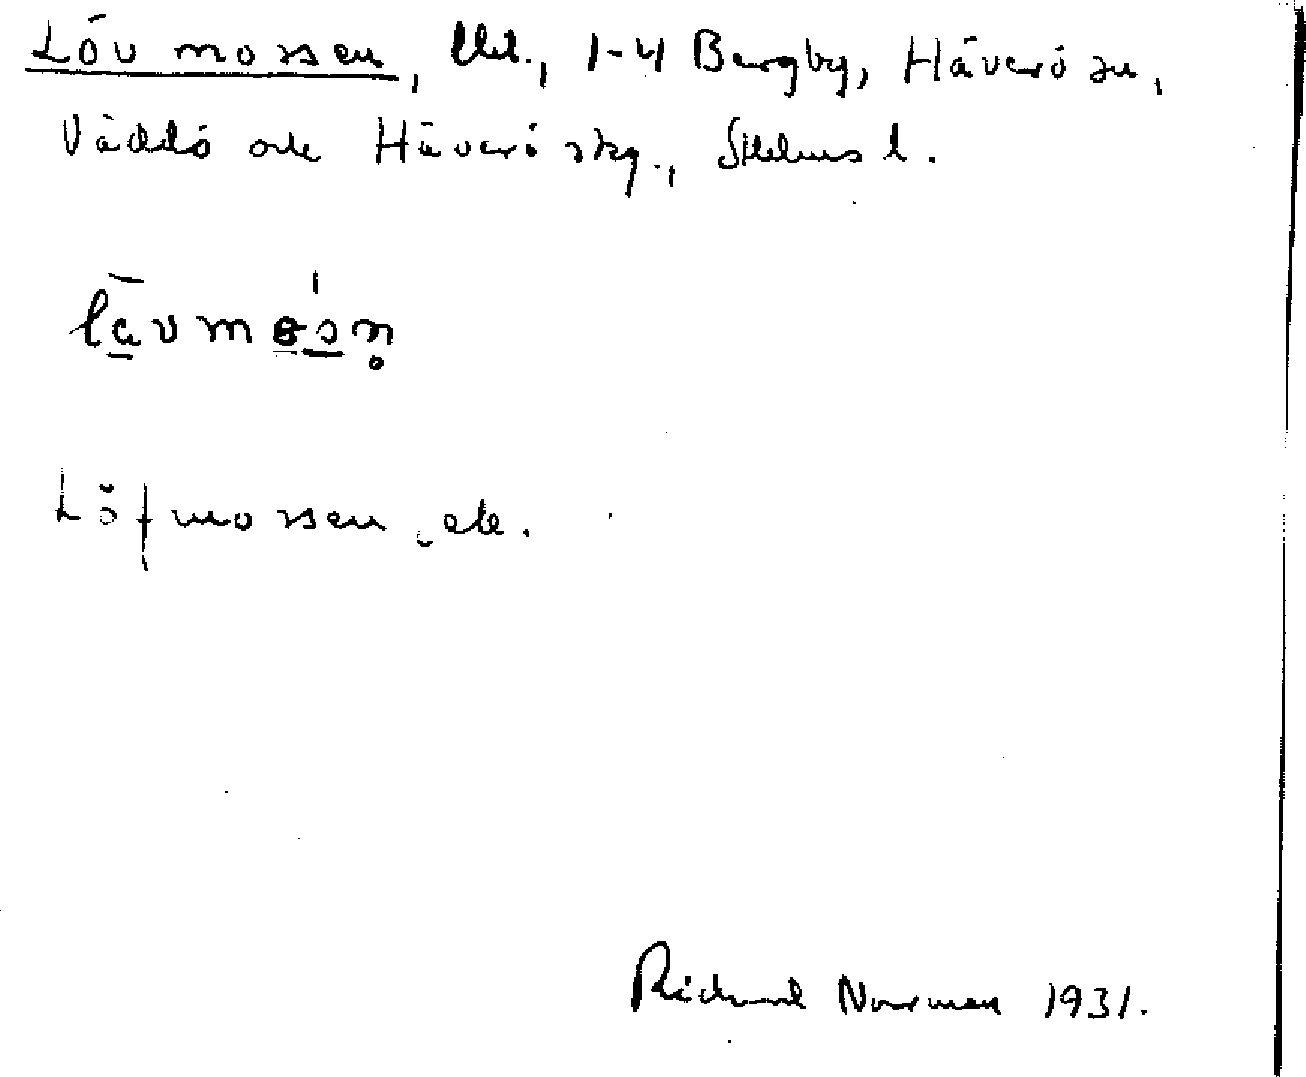 Lövmossen, Utl., 1-4 Bergby, Häverö sn,
Väddö och Häverö skg., Sthlms l.
lāvmósn̥
Löfmossen, ek.
Richard Norman 1931.